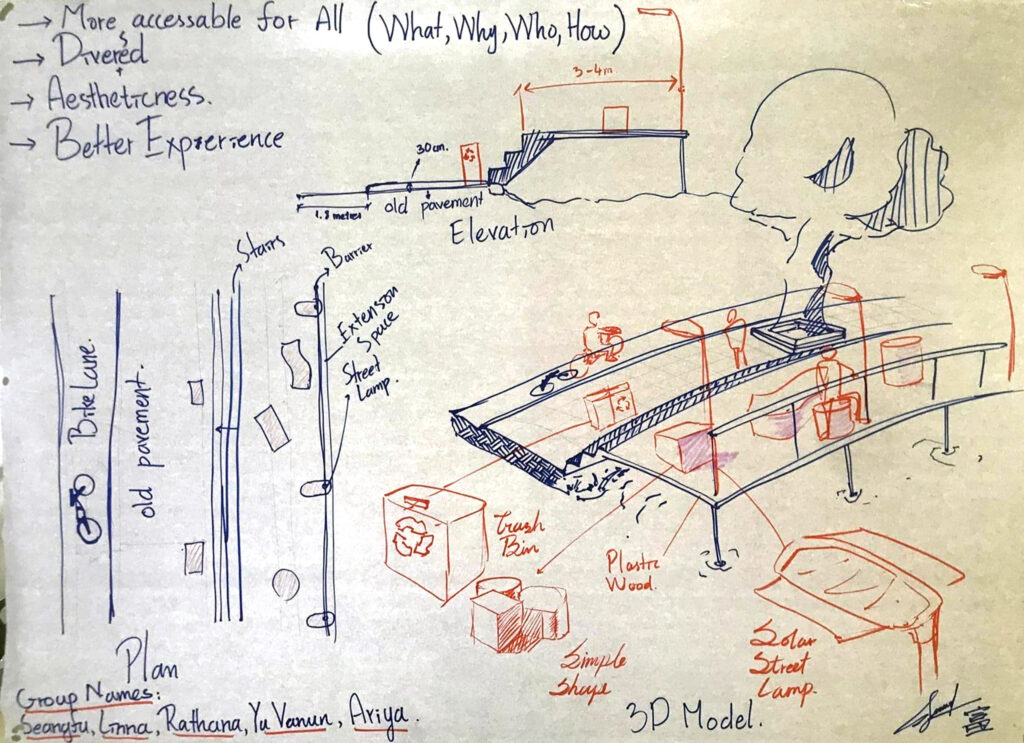 → More accessable for All (What, Why, Who, How)
→ Diversed
→ Aestheticness.
→ Better Experience
3-4m
30cm.
1.8 metres
old pavement
Elevation
Stairs
Barrier
Extenson
Space
Street
Lamp.
Bike Lane.
old pavement.
Plan
Trash
Bin
Plastic
Wood.
Simple
Shape
Solar
Street
Lamp.
3D Model.
Group Names:
Linna, Rathana, Yu Vanun, Ariya.